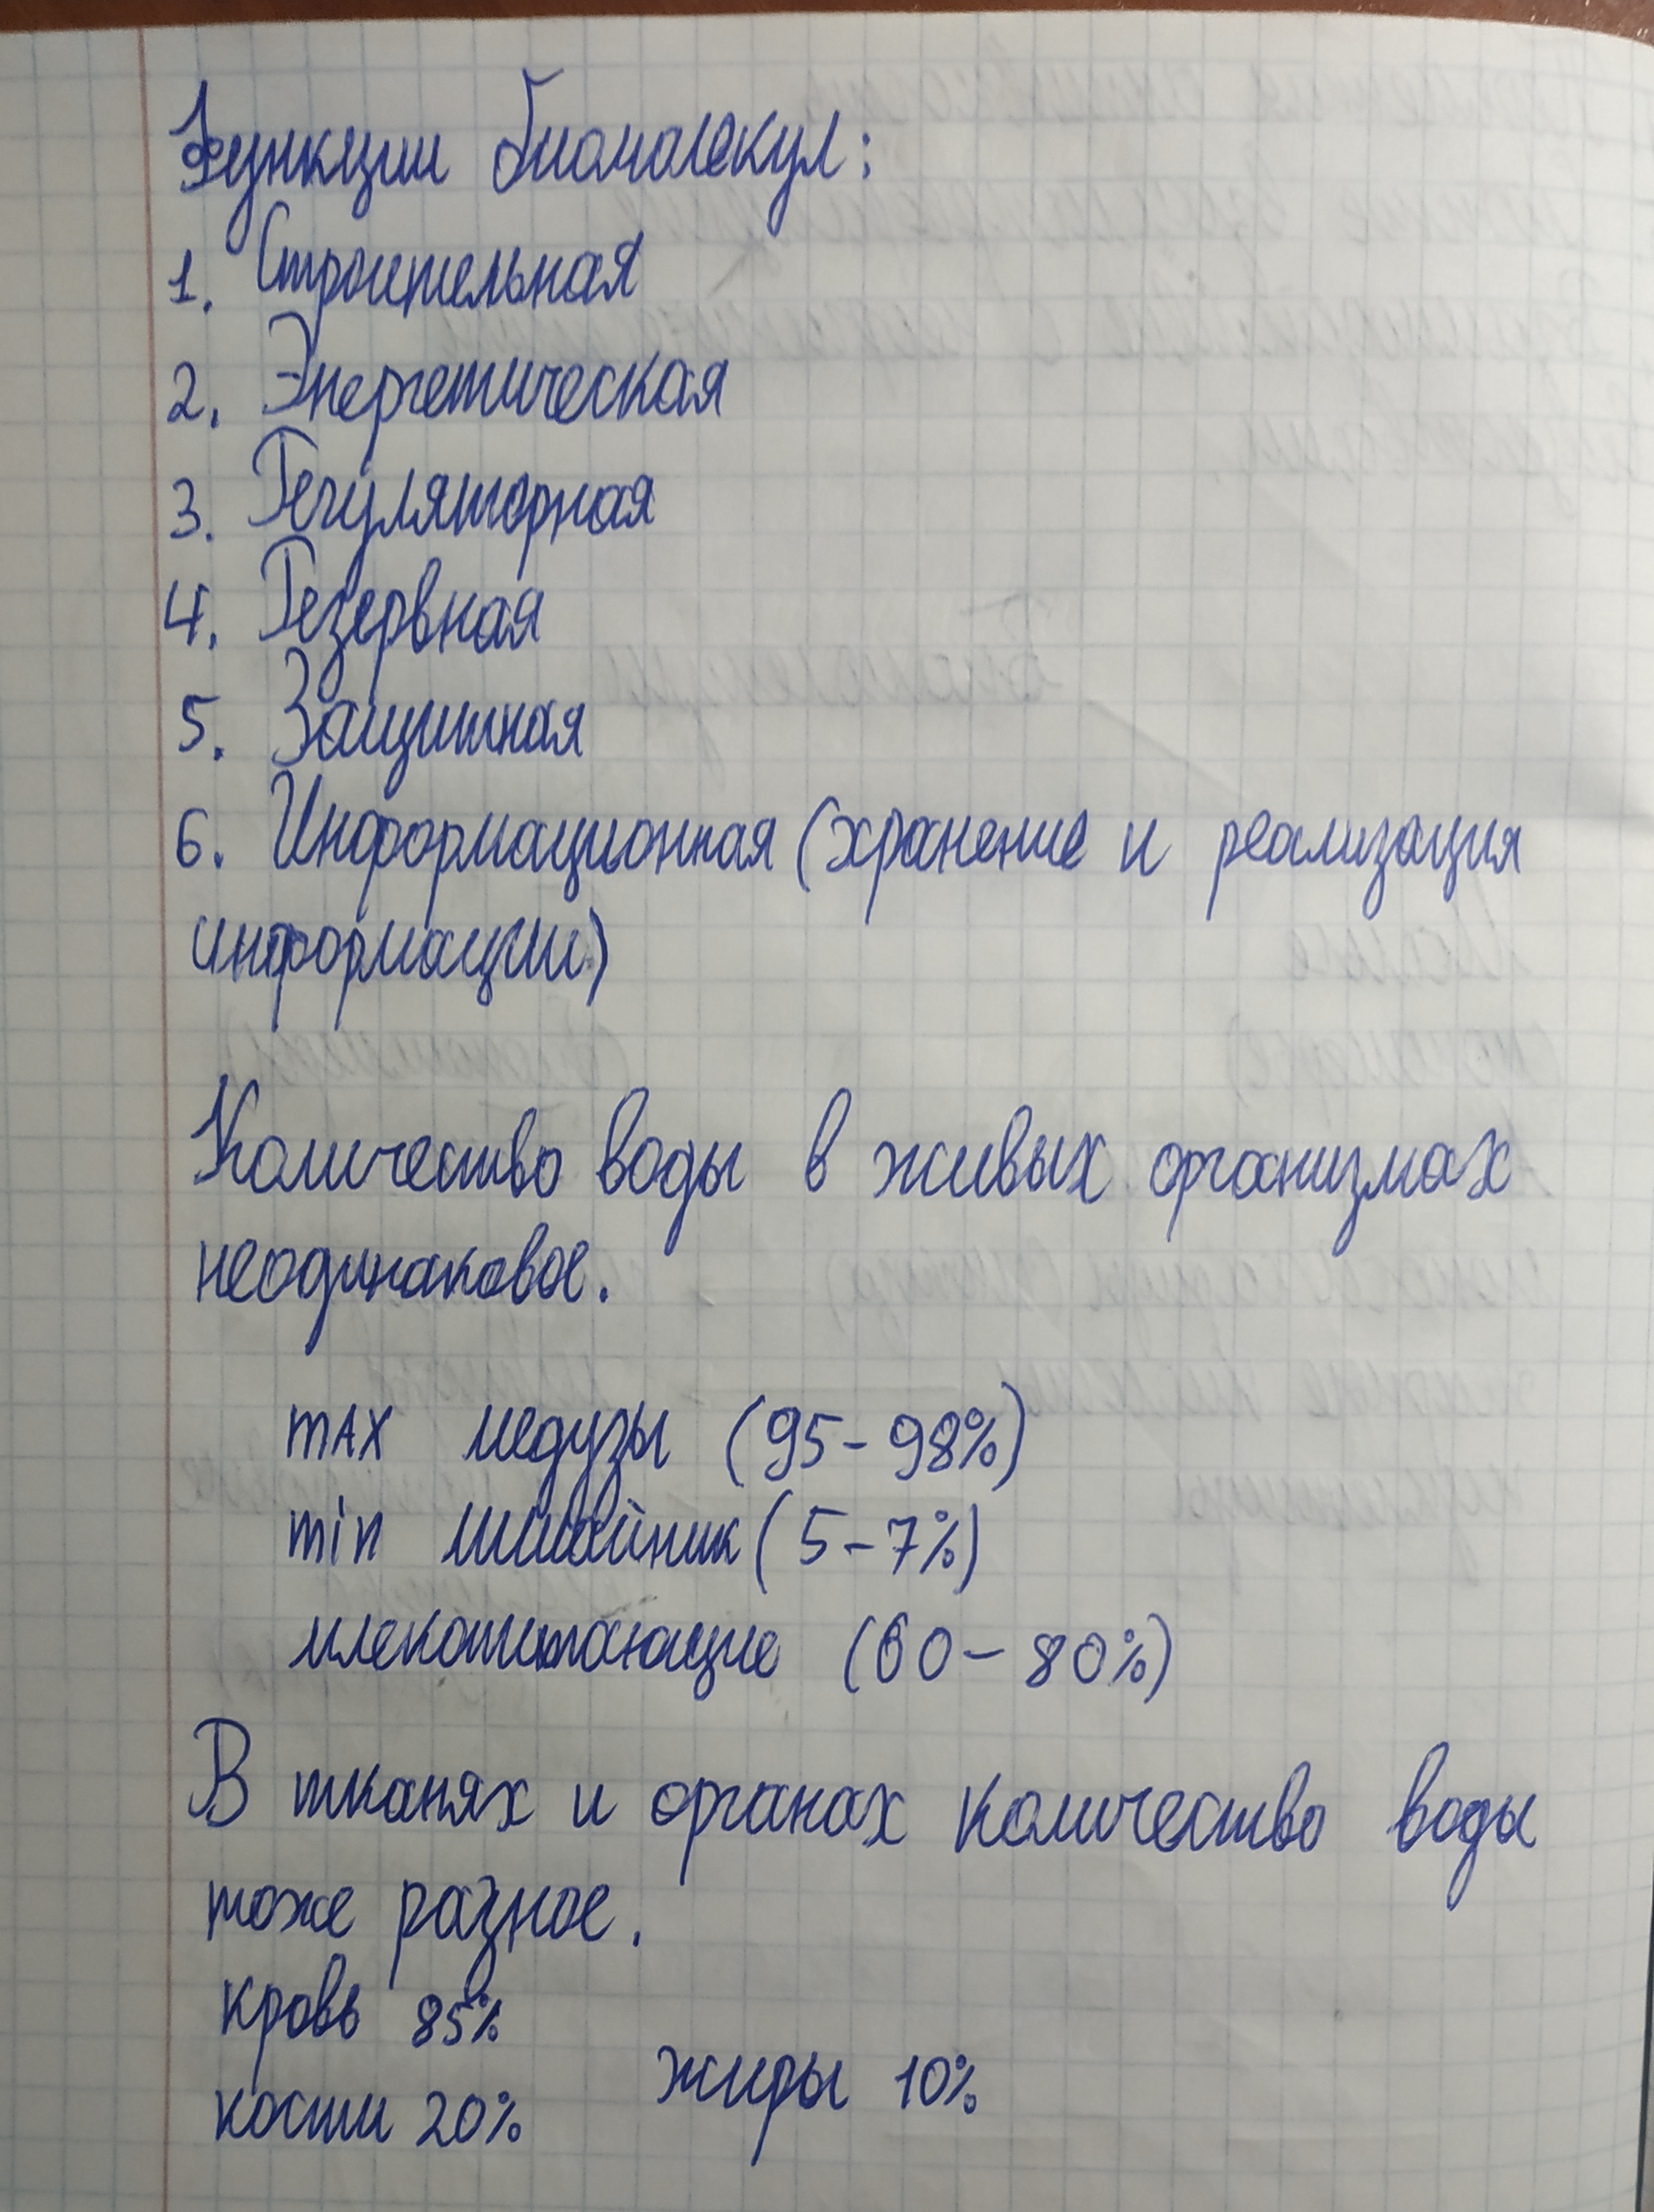 Функции биомолекул:
1. Строительная
2. Энергетическая
3. Регуляторная
4. Резервная
5. Защитная
6. Информационная (хранение и реализация
информации)
Количество воды в живых организмах
неодинаковое.
max медузы (95-98%)
min лишайник (5-7%)
млекопитающие (60-80%)
В тканях и органах количество воды
тоже разное.
кровь 85%
жиры 10%
кости 20%